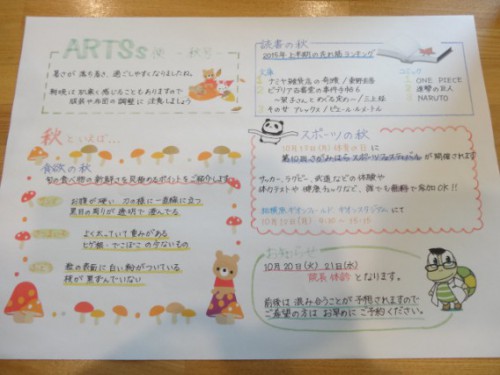 ARTSs
-秋号-
暑さが落ち着き、過ごしやすくなりましたね。
朝晩は肌寒く感じることもありますので
服装やお布団の調整に注意しましょう
秋といえば…
食欲の秋
旬の食べ物の新鮮さを見極めるポイントをご紹介します
お腹が硬い 刀の様に一直線に立つ
黒目の周りが透明で澄んでる
よく太っていて重みがある
ヒゲ根・でこぼこの少ないもの
軸の表面に白い粉がついている
枝が黒ずんでいない
読書の秋
2015年 上半期の売れ筋ランキング
文庫
1 ナミヤ雑貨店の奇蹟/東野圭吾
2 ビブリア古書堂の事件手帖6
~栞子さんとめぐるさだめ~/三上延
3 その女アレックス/ピエール・ルメートル
コミック
1 ONE PIECE
2 進撃の巨人
3 NARUTO
スポーツの秋
10月12日(月) 体育の日に
第10回さがみはらスポーツフェスティバルが開催されます
サッカー、ラグビー、武道などの体験や
体力テストや健康チェックなど、誰でも無料で参加OK!!
相模原ギオンフィールド ギオンスタジアムにて
10月12日(月)
10月20日(火) 21日(水)
院長休診となります。
前後は混み合うことが予想されますので
ご希望の方はお早めにご予約ください。